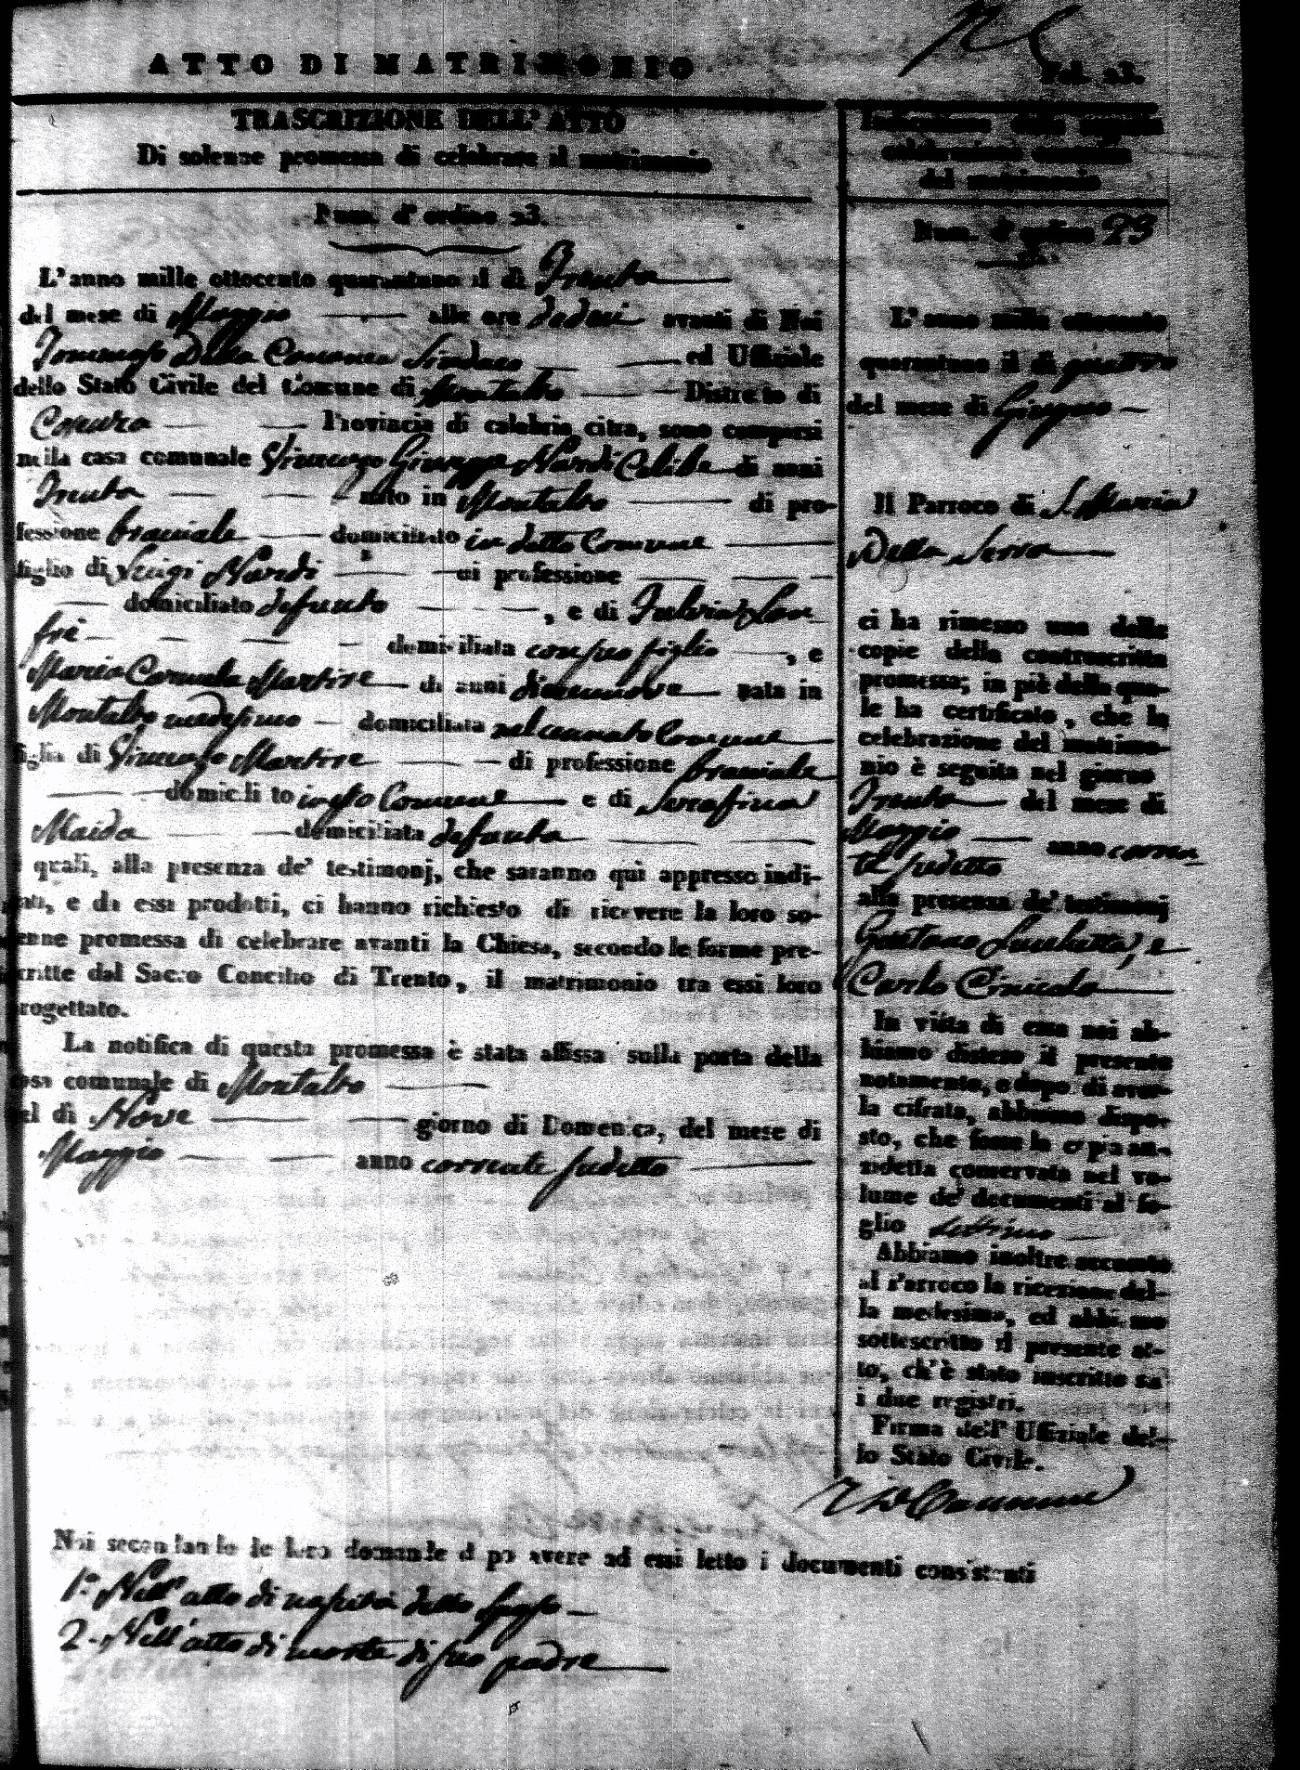 ATTO DI MATRIMONIO
Fol. 23.
TRASCRIZIONE DELL'ATTO
Di solenne promessa di celebrare il matrimonio
Num. d'ordine 23.
L'anno mille ottocento quarantuno il dì Trenta
del mese di Maggio alle ore dodeci avanti di Noi
Tommaso Della Cananea Sindaco ed Uffiziale
dello Stato Civile del Comune di Montalto Distretto di
Cosenza Provincia di calabria citra, sono comparsi
nella casa comunale Vincenzo Giuseppe Nardi Celibe di anni
Trenta nato in Montalto di pro-
fessione bracciale domiciliato in detto Comune
figlio di Luigi Nardi di professione
domiciliato defunto , e di Fulvia
domiciliata con suo figlio , e
Maria Carmela Martire di anni diecinnove nata in
Montalto medesimo domiciliata nel cennato Comune
figlia di Vincenzo Martire di professione bracciale
domiciliato in Comune e di Serafina
Maida domiciliata defunta
i quali, alla presenza de' testimonj, che saranno quì appresso indi-
cati, e da essi prodotti, ci hanno richiesto di ricevere la loro so-
lenne promessa di celebrare avanti la Chiesa, secondo le forme pre-
scritte dal Sacro Concilio di Trento, il matrimonio tra essi loro
progettato.
La notifica di questa promessa è stata affissa sulla porta della
casa comunale di Montalto
nel dì Nove giorno di Domenica, del mese di
Maggio anno corrente sudetto
Noi secondando le loro domande d po avere ad essi letto i documenti consistenti
1.° Nell'atto di nascita dello sposo
2.° Nell'atto di morte di suo padre
Indicazione della seguita
celebrazione canonica
del matrimonio
Num. d'ordine 23
L'anno mille ottocento
quarantuno il dì quattro
del mese di Giugno
Il Parroco di S. Maria
Della Serra
ci ha rimesso una delle
copie della controscritta
promessa; in piè della qua-
le ha certificato, che la
celebrazione del matrimo-
nio è seguita nel giorno
Trenta del mese di
Maggio anno corren
te sudetto
alla presenza de' testimonj
Gaetano Lucchetta, e
Carlo
In vista di essa noi ab-
biamo disteso il presente
notamento, e dopo di aver-
la cifrata, abbiamo dispo-
sto, che fosse la copia an-
zidetta conservata nel vo-
lume de' documenti al fo-
glio
Abbiamo inoltre accusato
al Parroco la ricezione del-
la medesima, ed abbiamo
sottoscritto il presente at-
to, ch'è stato inscritto su'
i due registri.
Firma dell'Uffiziale del-
lo Stato Civile.